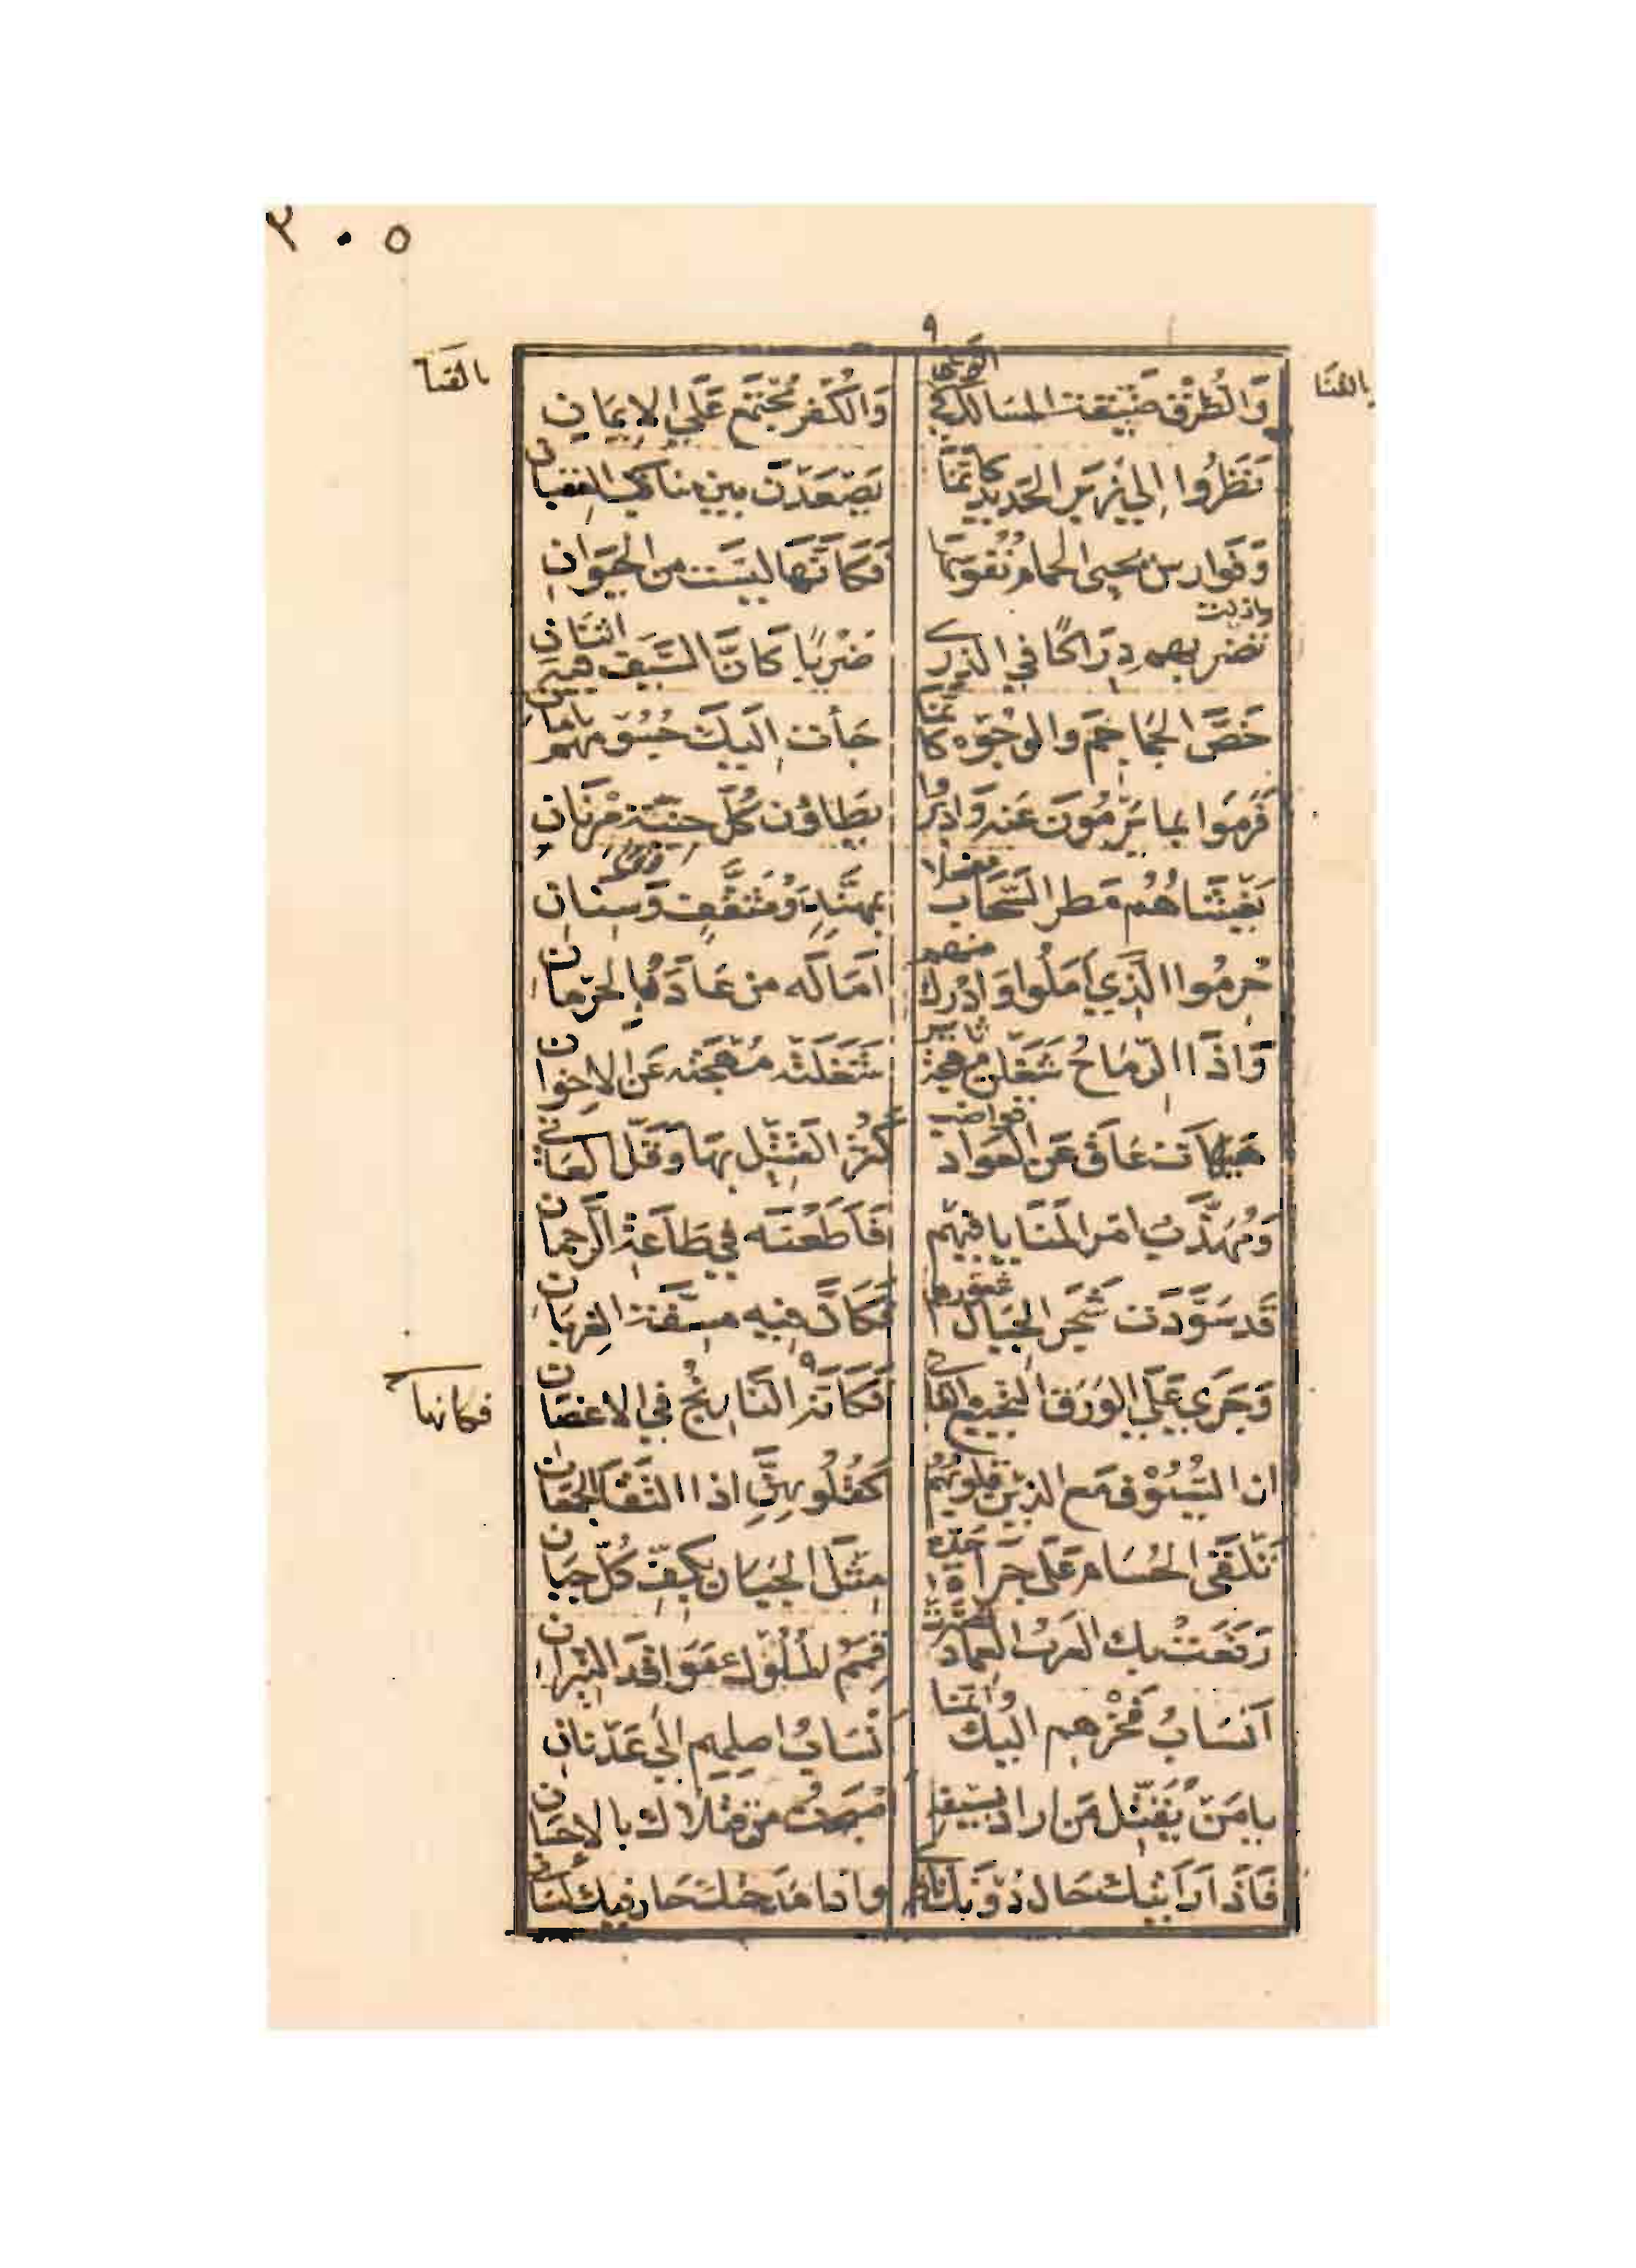 ٣٠٥
٩
وَالطُرْق ضَيّقت المسَالك بالقنا وَالكُفر مُجتمَع عَلَي الإيمَانِ بالقنا
نَظَرُوا إلي زبَر الحَديد كانّمَا يَصْعَدْنَ بين مناكب العقبان
وَفَوارس يحيي الحمام نُفوسَهَا فَكَانَّهَا ليسَت من الحيَوانِ
تضربهم دِرَاكًا في الذري ضَرْبًا كَانَّ السَّيف فيه اثنَان
خَصَّ الجمَاجمَ والوُجُوه كانمّا جَأت اِلَيكَ جُسُومهم بامان
فَرمَوا بما يَرْمُونَ عَنه وَادبروا يطاؤن كُلّ حنيّة مرْنَانِ
يَغْشَاهُم مَطر السَّحَاب مفصلا بمهنَّدٍ وَمُثقَّفٍ وَسِنانِ
حُرِمُوا الَّذِي أمَلُوا وَادْرك منهم آمَاله من عَادَ بالحرمان
وَاذَا الرّمَاحُ شَغَلن مهجة ثاير شَغَلَتْه مُهجَته عَن الاخوان
هَيهَات عَاق عَن العَواد قواضب كثر القَتِيل بهَا وَقَلّ العَاني
وَمُهَذّب امَر المَنَايا فيهم فَاَطَعْنَه فِي طَاعَةِ الرَحمان
قَد سَوَّدَت شَجَر الجبَال شعورهم فَكَانَّ فيه مسفّة الغربَان
وَجَرَي عَلَي الوَرَق النجيع القاني فَكَانّه النَارِنْجُ في الاغصَان فكانها
ان السُّيُوْف مَع الذين قلوبُهُم كَقُلُوبِهِنَّ اذا التَقَا الجمعَان
تَلقَي الحُسَام عَلَي جَرَاة حَدّه مِثْلَ الجَبَان بكفّ كُلّ جبَان
رَفَعَتْ بك العَرب العمَاد وصيرت قمم المُلُوك مَوَاقد النيران
اَنسَابُ فَخْرهم اليك وانّمَا اَنْسَابُ اصلهم الَي عَدْنَانِ
يا مَن يُقتّل مَن اراد بسيفه اصْبَحتُ من قتلاك بالاحسَان
فَاذَا رَاَيتك حَار دُوْنك ناظري واذا مَدَحتك حَار فيك لسَاني